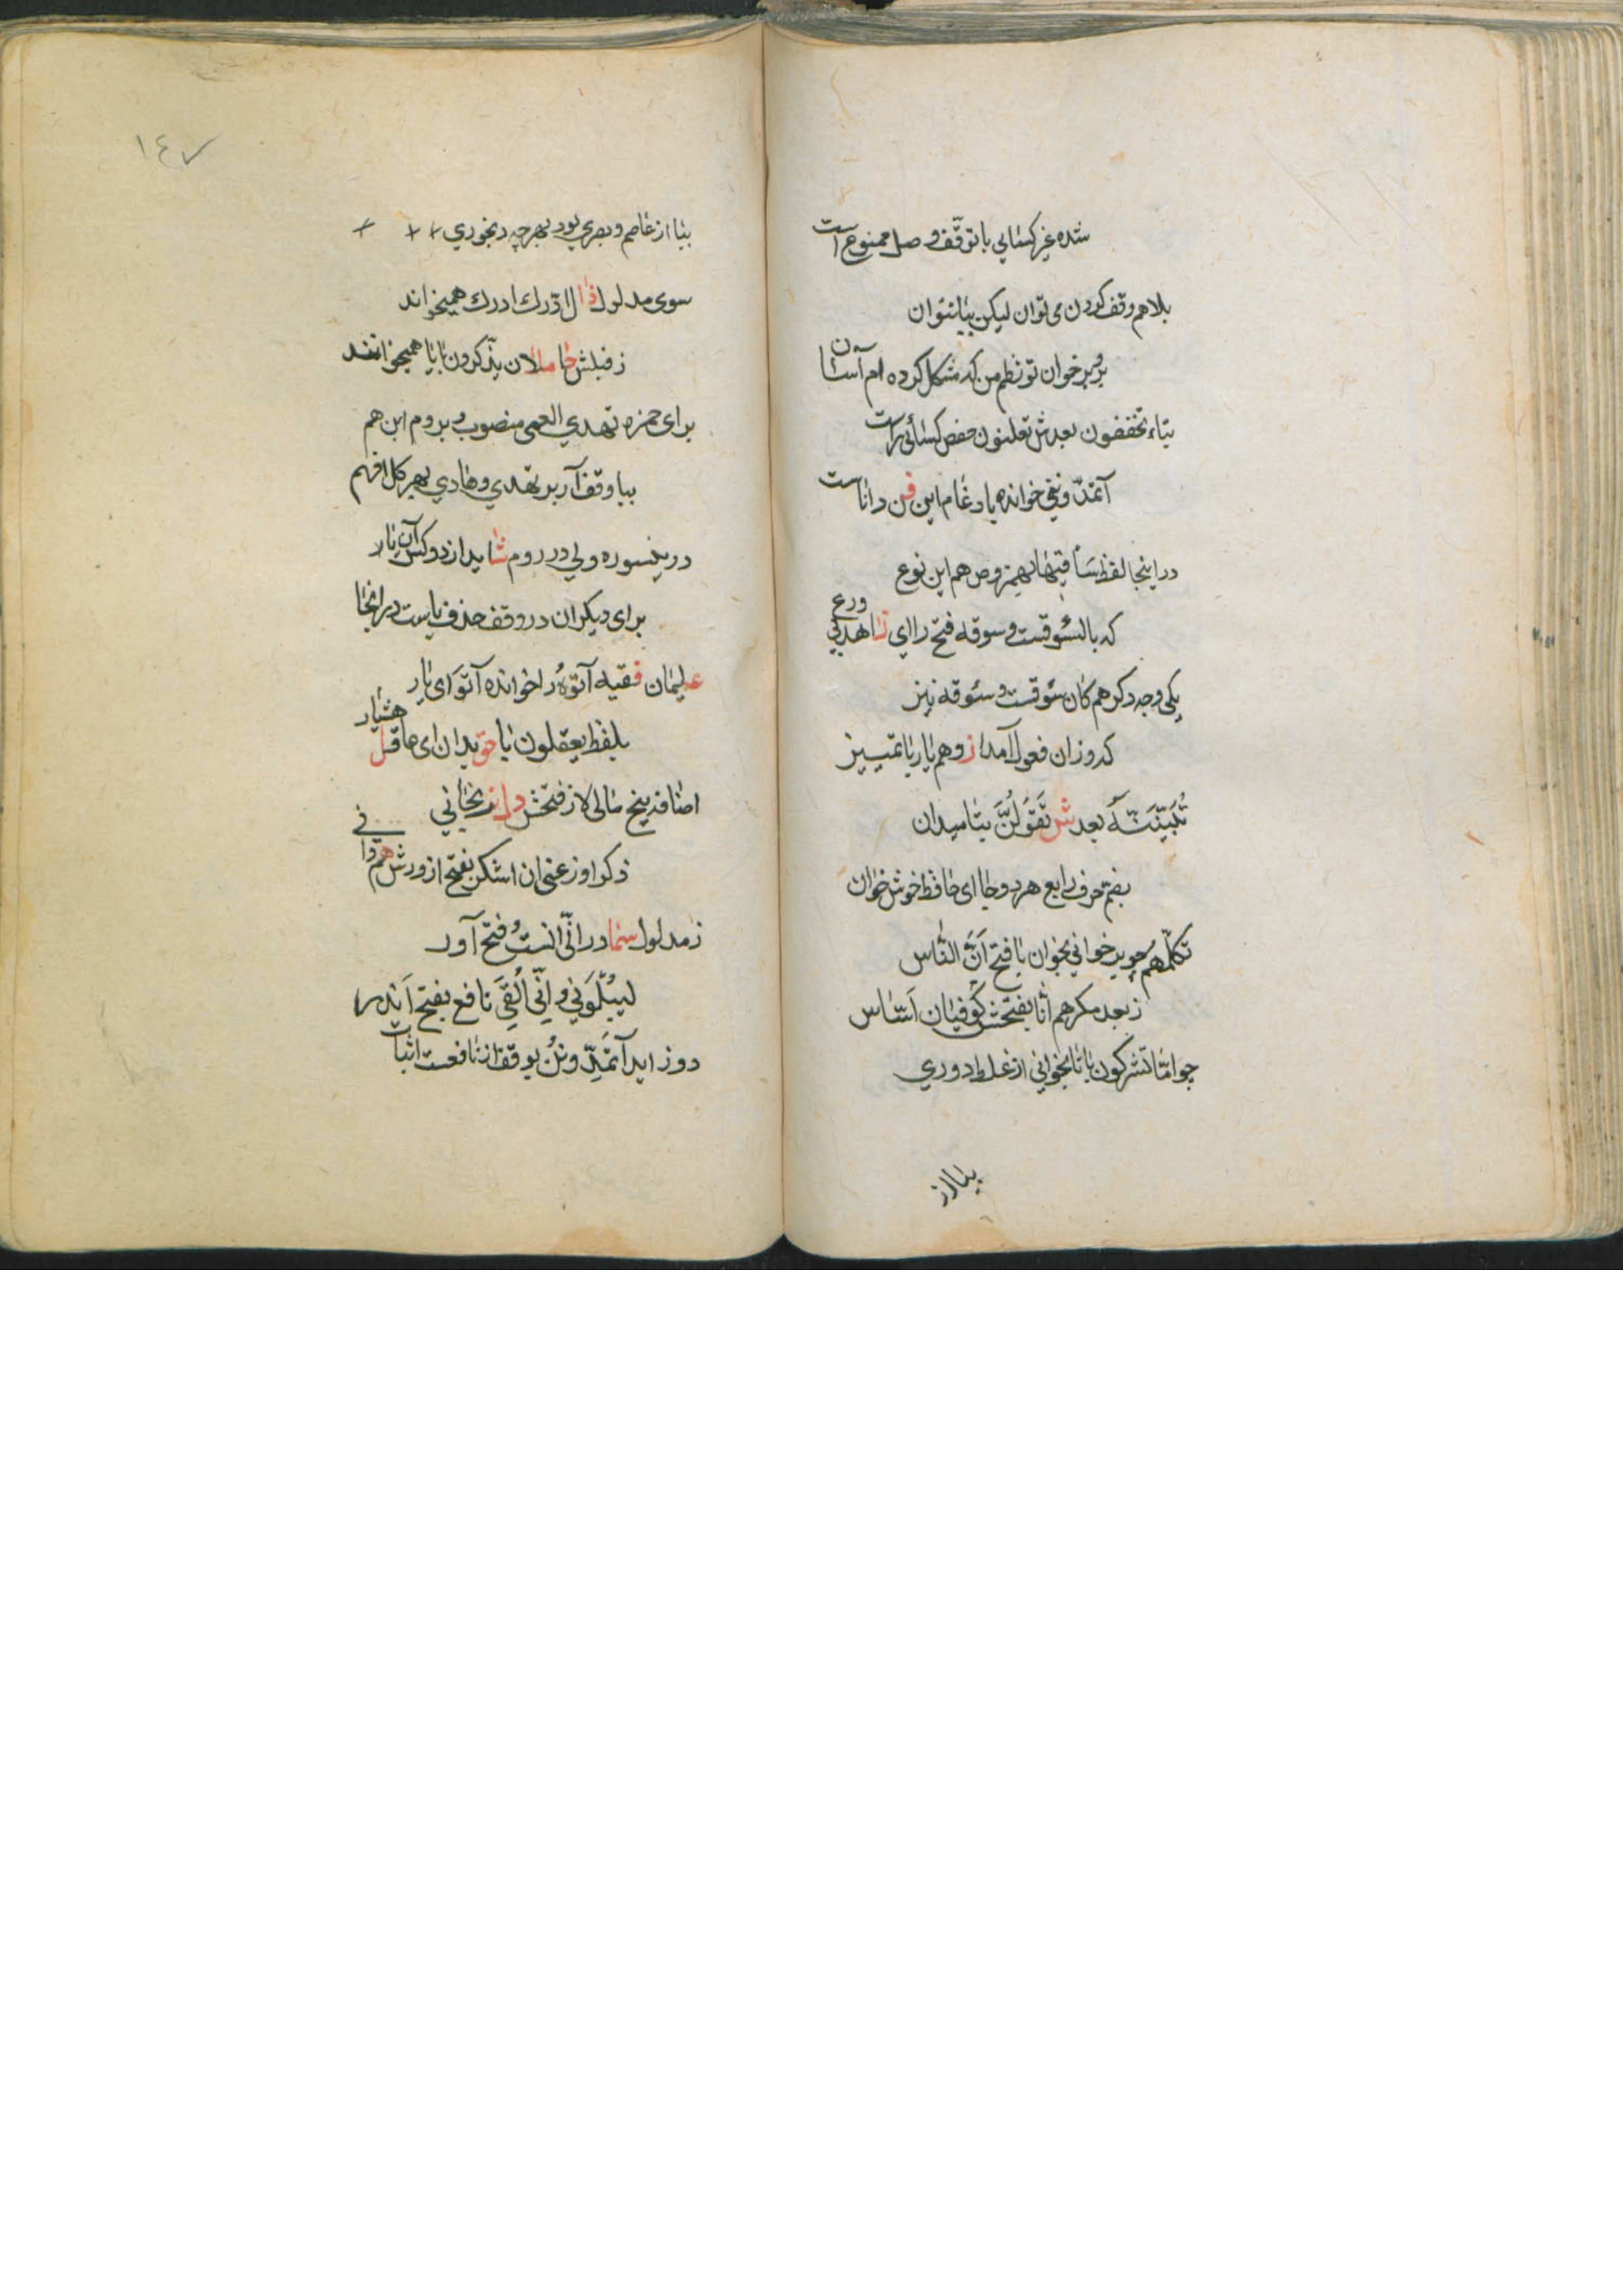 شده غیر کسایی با توقف وصل ممنوع است
بلا هم وقف کردن می توان لیکن بیا نتوان
برو بر خوان تو نظم من که مشکل کرده ام آسان
بتاء تخففون بعدش تعلنون حفص کسائی راست
آتمدّونی خوانده یادغام این فن داناست
در اینجا لفظ سَأقیها بهمز و ص هم این نوع
که بالسّوقست و سوقه فتح را ای زاهدبی ورع
یکی وجه دکر هم کان سئوقست و سئوقه نیز
که وزان فعول آمد از و هم یار باتمییز
تُبَیِّتَنَّهُ بعدش تَقَوُلُنَّ بتا میدان
بضم حرف رابع هر دو جا ای حافظ خوش خوان
تکلّمهم چو برخوانی بخوان با فتح اَنَّ النّاس
ز بعد مکرهم اَنّا بفتحش کوفیان اَشناس
چو امّا تشرکون با تا بخوانی از غلط دوری
بیا از
١٤٧
بیا از عاصم و بصری بود بهرچه رنجوری
سوی مدلول ذا ال ادّرك ادرك همیخواند
ز قبلش حاملان یذّکرون با یا همیخوانند
برای حمزه تهدی العمی منصوب و بروم این هم
بیا وقف آر بر تهدی و هادی بهر کل افهم
درینسوره ولی در روم شاید از دو کس آن یار
برای دیکران در وقف حذف یاست در اینجا
علیمان فقیه آتوهُ را خوانده آتَوَ ای یار
بلفظ یعقلون با حق بدان ای عاقل هشیار
اضافه پنج مالی لا ز فتحش دراند یخانی
ذکر اوزعنی ان اشکر بفتح از ورش هم وا فی
ز مدلول سما در انّی آنستُ فتح آور
لیبْلُوَنی و اِنّی اُلْقِیَ نافع بفتح اندر
دو زاید آتمدّونن بوقف از نافعست اثبات